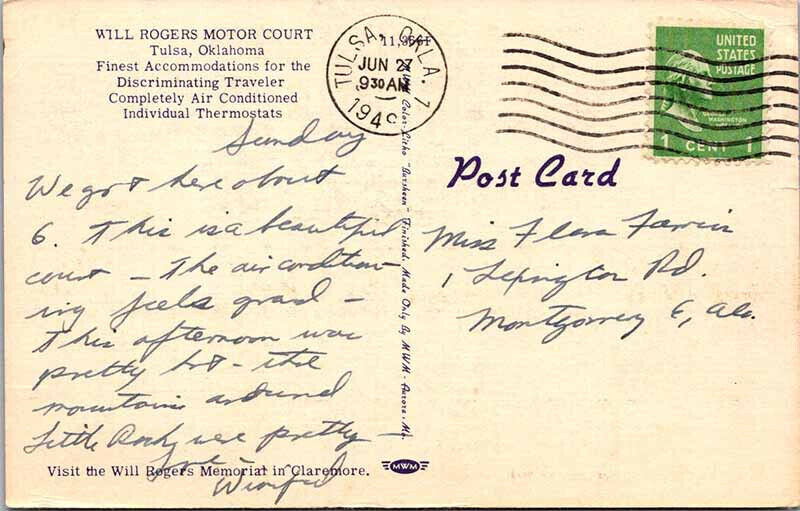 WILL ROGERS MOTOR COURT
Tulsa, Oklahoma
Finest Accommodations for the
Discriminating Traveler
Completely Air Conditioned
Individual Thermostats
TULSA, OKLA. 1
JUN 27
930 AM
194
UNITED
STATES
POSTAGE
GEORGE
WASHINGTON
1 CENT 1
Post Card
Sunday
We got here about
6. This is a beautiful
court – The air condition-
ing feels grand –
This afternoon was
pretty hot – the
mountains around
Little Rock were pretty –
Love –
Winifred
Miss Flora
1 Lexington Rd.
Montgomery 6, Ala.
Color-Litho "Bursheen" Finished, Made Only By MWM - Aurora, Mo.
Visit the Will Rogers Memorial in Claremore.
MWM